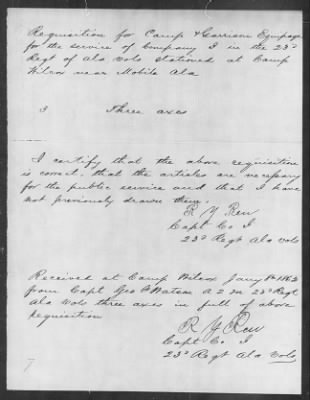 Requisition for Camp & Garrison Equipage
for the service of Company I in the 23d
Regt of Ala Vols stationed at Camp
Wilcox near Mobile Ala
3 Three axes
I certify that the above requisition
is correct, that the articles are necessary
for the public service and that I have
not previously drawn them.
R Y Rew
Capt Co I
23d Regt Ala Vols
Received at Camp Wilcox Jany 186
from Capt Geo Watson A Q M 23d Regt
Ala Vols three axes in full of above
requisition
R Y Rew
Capt Co I
23d Regt Ala Vols
7